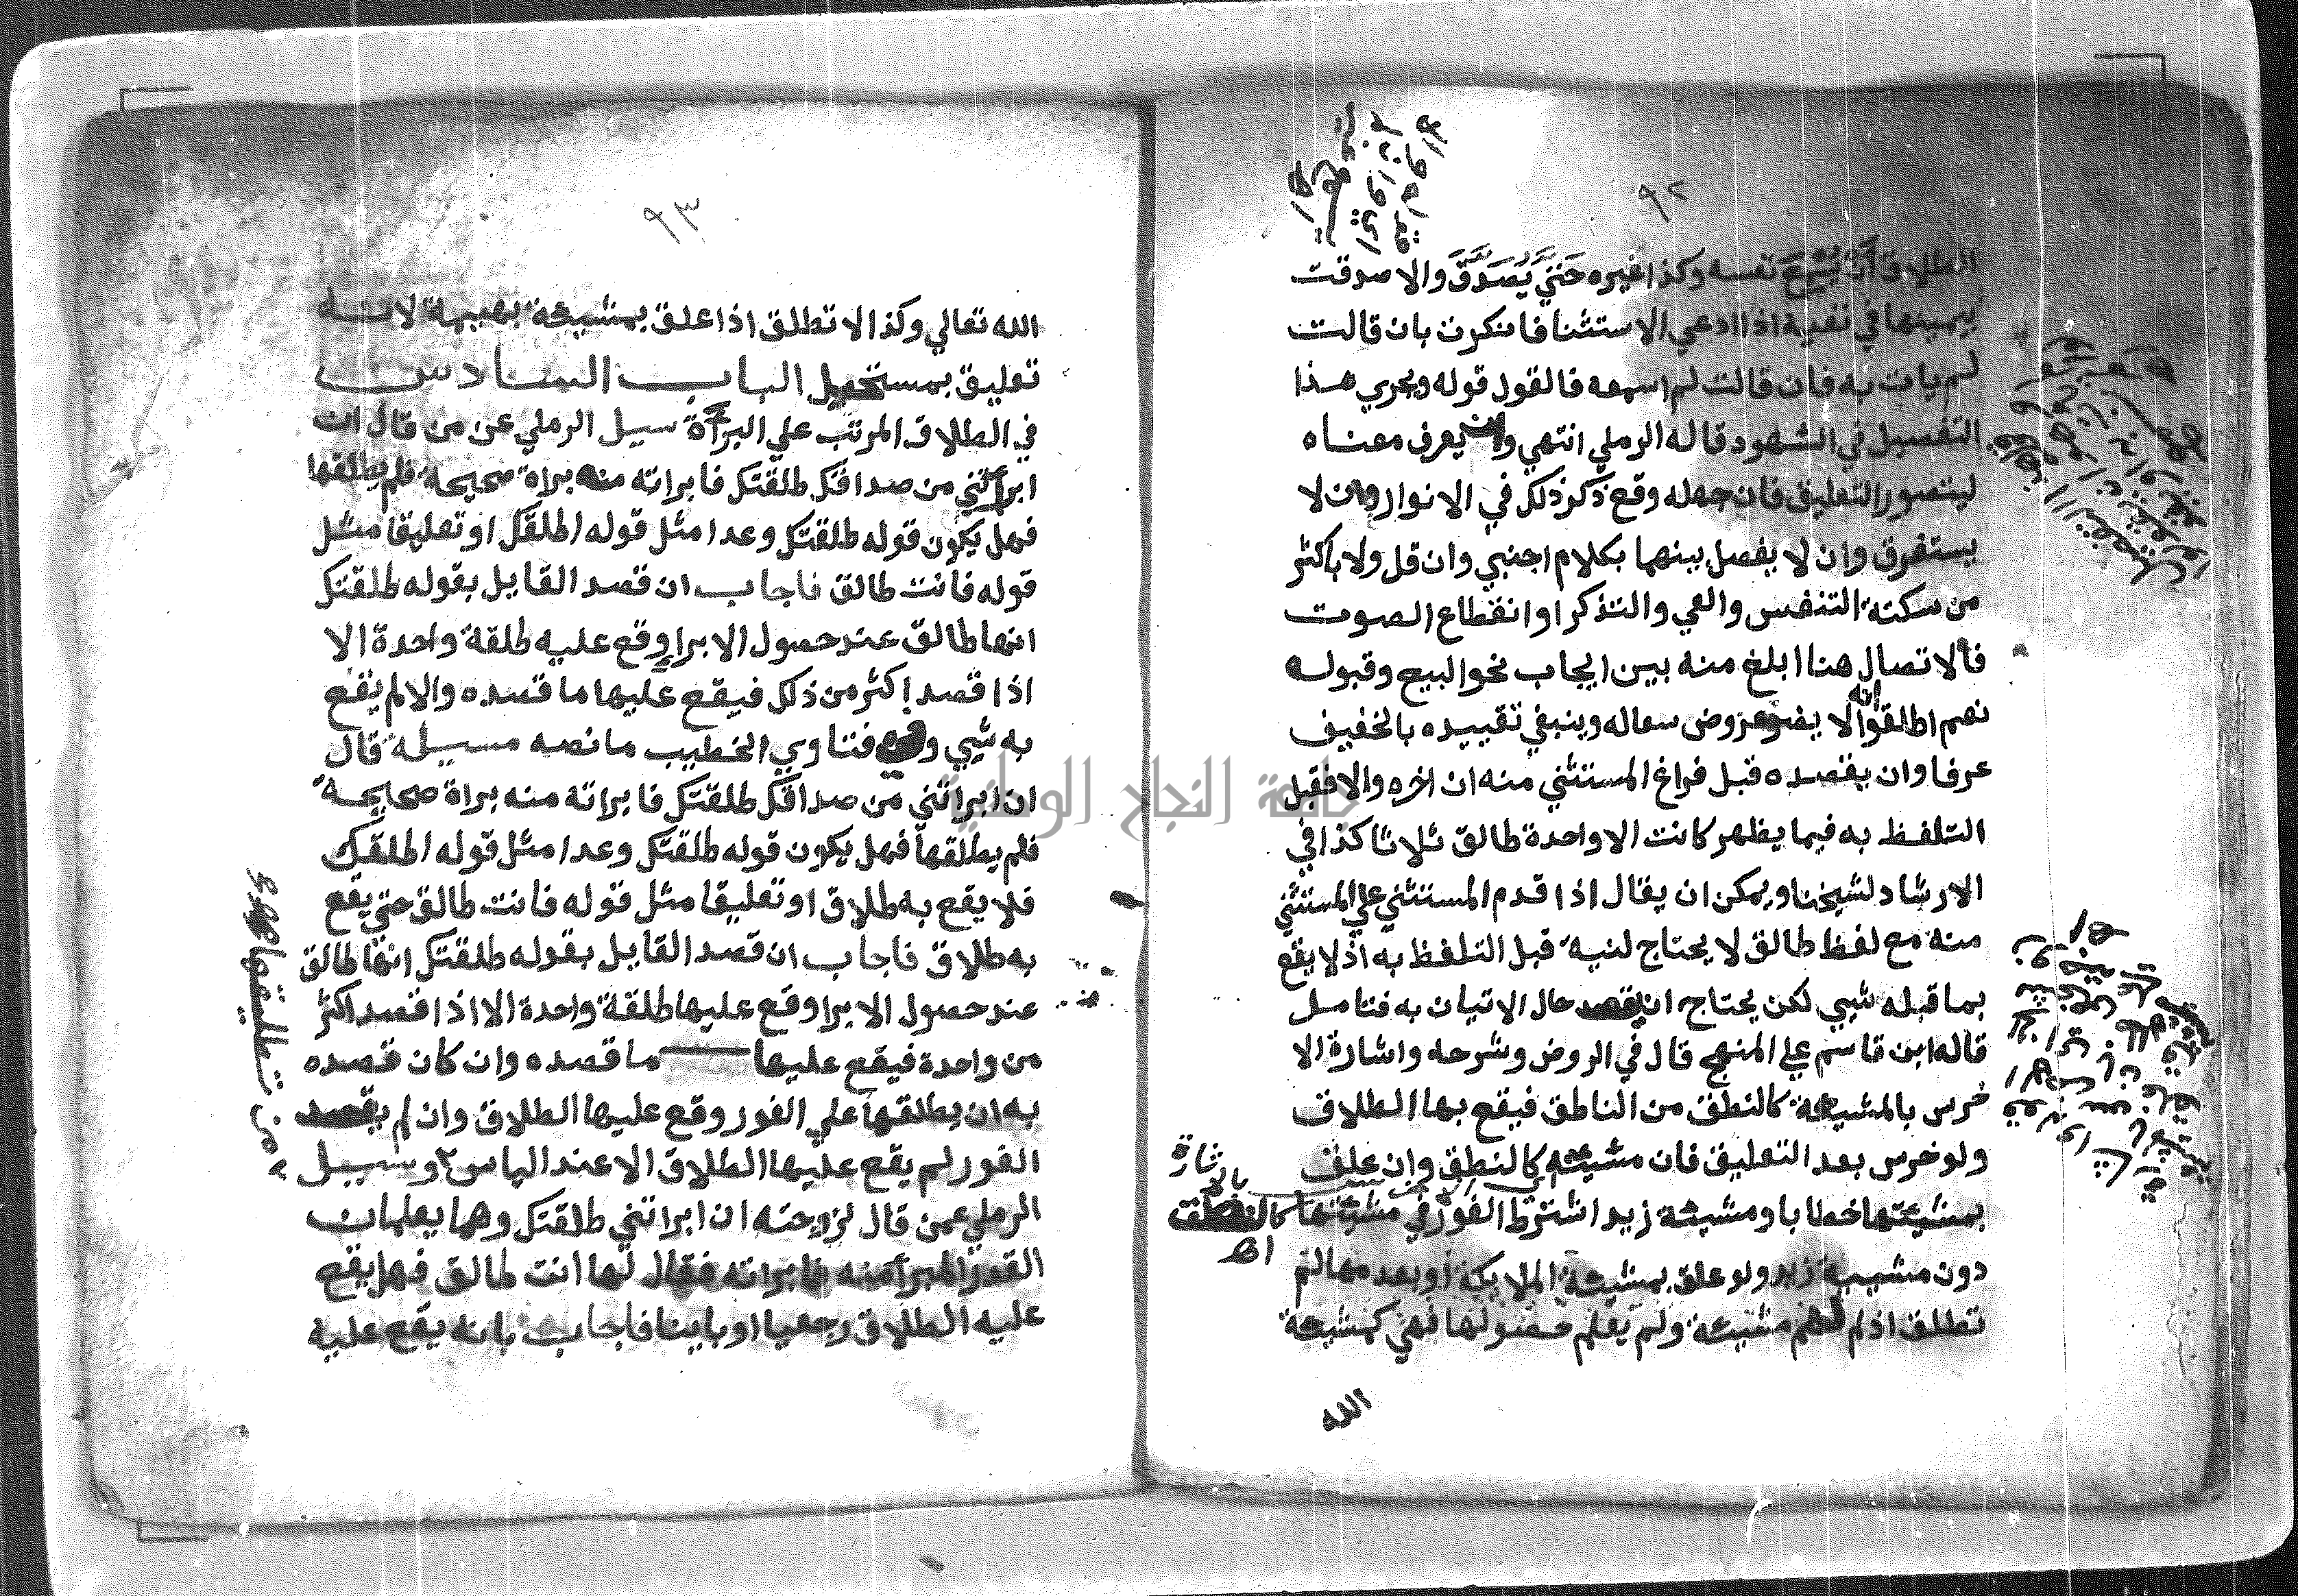 ٩٢
الطلاق أن يُسْمِعَ نفسه وكذا غيره حَتَّي يُصَدَّقَ والا صدقت
بيمينها في نفيه اذا ادعي الاستثنا فانكرت بان قالت
لم يات به فان قالت لم اسمعه فالقول قوله ويجري هذا
التفصيل في الشهود قاله الرملي انتهي وان يعرف معناه
ليتصور التعليق فان جهله وقع ذكر ذلك في الانوار وان لا
يستغرق وان لا يفصل بينهما بكلام اجنبي وان قل ولا باكثر
من سكتة التنفس والعي والتذكر او انقطاع الصوت
فالاتصال هنا ابلغ منه بين ايجاب نحو البيع وقبوله
نعم اطلقوا انه لا يضر عروض سعاله وينبغي تقييده بالخفيف
عرفا وان يقصده قبل فراغ المستثني منه ان اخره والا فقبل
التلفظ به فيما يظهر كانت الا واحدة طالق ثلاثا كذا في
الارشاد لشيخنا ويمكن ان يقال اذا قدم المستثني علي المستثني
منه مع لفظ طالق لا يحتاج لنية قبل التلفظ به اذ لا يقع
بما قبله شيي لكن يحتاج ان يقصد حال الاتيان به فتامل
قاله ابن قاسم علي المنهج قال في الروض وشرحه واشارة الا
خرس بالمشيئة كالنطق من الناطق فيقع بها الطلاق
ولو خرس بعد التعليق فان مشيئته كالنطق وان علق
بمشيئتها خطابا و مشيئة زيد اشترط الفور في مشيئتها
دون مشيية زيد ولو علق بمشيئة الملايكة او بعدمها لم
تطلق اذ لم لهم مشيئة ولم يعلم حصولها فهي كمشيئة
الله
بالاشارة
كالنطق
اه
٩٣
الله تعالي وكذا لا تطلق اذا علق بمشيئة بهيمة لانه
تعليق بمستحيل الباب السادس
في الطلاق المرتب علي البرأة سيل الرملي عن من قال ان
ابرأتني من صداقك طلقتك فابراته منه براة صحيحة فلم يطلقها
فهل يكون قوله طلقتك وعدا مثل قوله اطلقك او تعليقا مثل
قوله فانت طالق فاجاب ان قصد القايل بقوله طلقتك
انها طالق عند حصول الابرا وقع عليه طلقة واحدة الا
اذا قصد اكثر من ذلك فيقع عليها ما قصده والا لم يقع
به شيي وفي فتاوي الخطيب ما نصه مسيلة قال
ان ابراتني من صداقك طلقتك فابراته منه براة صحيحة
فلم يطلقها فهل يكون قوله طلقتك وعدا مثل قوله اطلقك
فلا يقع به طلاق او تعليقا مثل قوله فانت طالق حتي يقع
به طلاق فاجاب ان قصد القايل بقوله طلقتك انها طالق
عند حصول الابرا وقع عليها طلقة واحدة الا اذا قصد اكثر
من واحدة فيقع عليها ما قصده وان كان قصده
به ان يطلقها علي الفور وقع عليها الطلاق وان لم يقصد
الفور لم يقع عليها الطلاق الا عند الياس ٢ وسيل
الرملي عمن قال لزوجته ان ابراتني طلقتك وهما يعلمان
القدر المبرأ منه فابراته فقال لها انت طالق فهل يقع
عليه الطلاق رجعيا او باينا فاجاب بانه يقع عليه
٢ من تطليقها
جامعة النجاح الوطنية